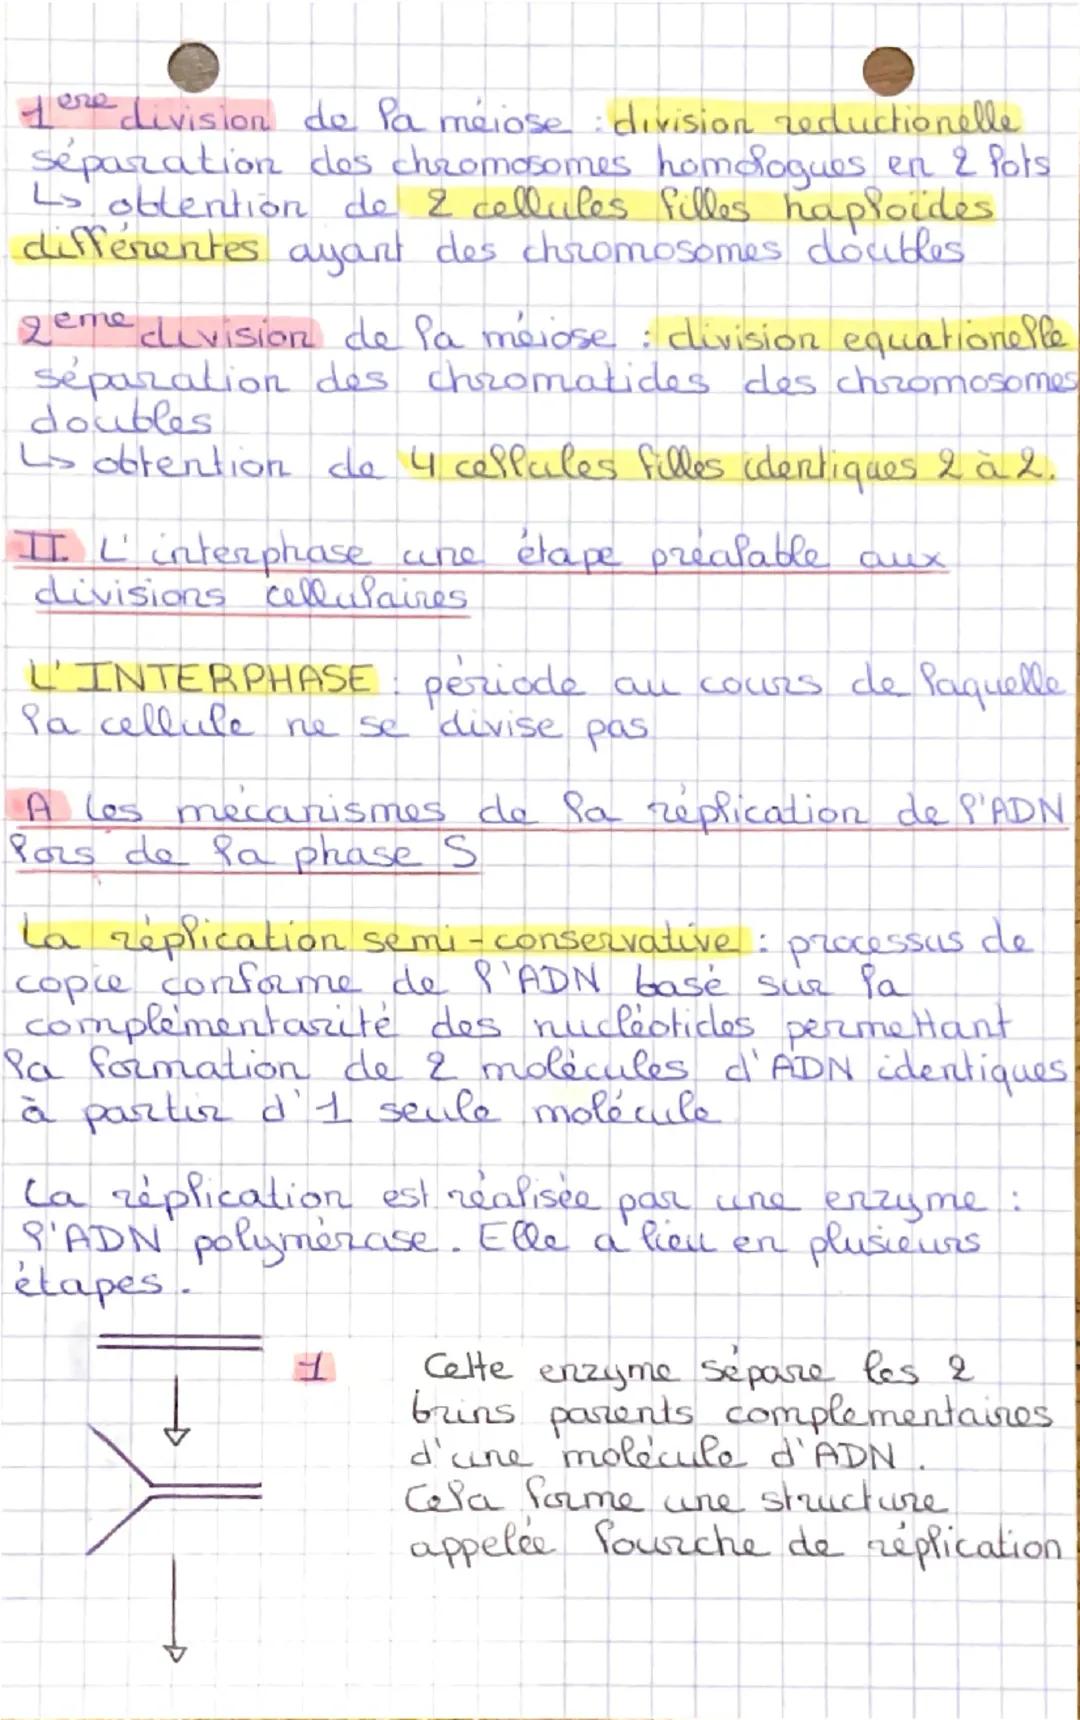 1ere division de la méiose : division reductionelle
séparation des chromosomes homologues en 2 lots
↳ obtention de 2 cellules filles haploïdes
différentes ayant des chromosomes doubles
2eme division de la méiose : division equationelle
séparation des chromatides des chromosomes
doubles
↳ obtention de 4 cellules filles identiques 2 à 2.
II L'interphase une étape préalable aux
divisions cellulaires
L'INTERPHASE : période au cours de laquelle
la cellule ne se divise pas
A les mécanismes de la réplication de l'ADN
lors de la phase S
La réplication semi-conservative : processus de
copie conforme de l'ADN basé sur la
complémentarité des nucléotides permettant
la formation de 2 molécules d'ADN identiques
à partir d'1 seule molécule
La réplication est réalisée par une enzyme :
l'ADN polymérase. Elle a lieu en plusieurs
étapes.
1 Cette enzyme sépare les 2
brins parents complementaires
d'une molécule d'ADN.
Cela forme une structure
appelée fourche de réplication